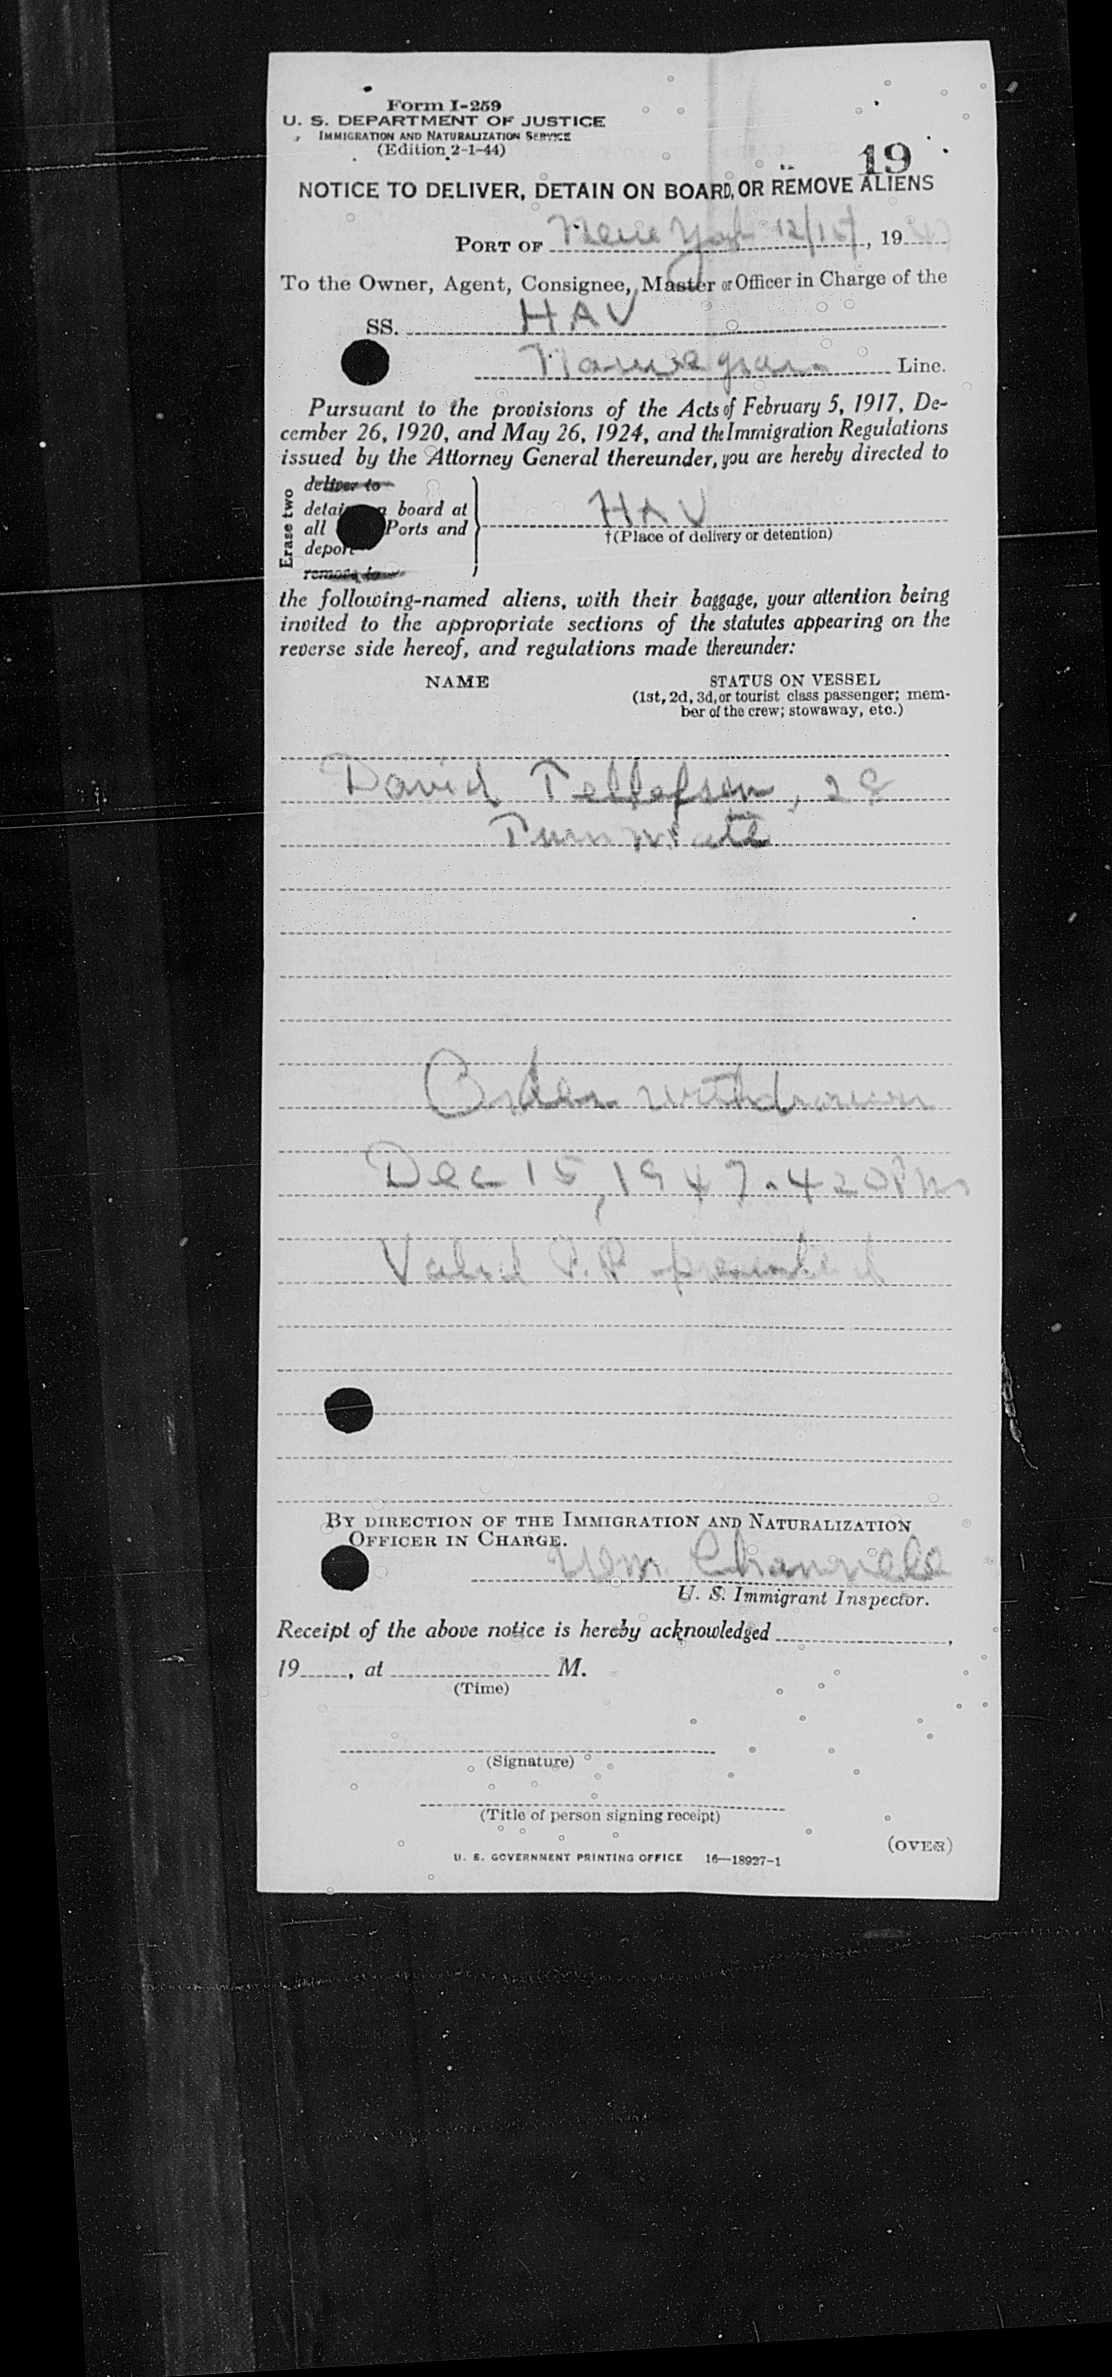 Form I-259
U. S. DEPARTMENT OF JUSTICE
IMMIGRATION AND NATURALIZATION SERVICE
(Edition 2-1-44)
19
NOTICE TO DELIVER, DETAIN ON BOARD, OR REMOVE ALIENS
PORT OF New York 12/15/, 1947
To the Owner, Agent, Consignee, Master or Officer in Charge of the
SS. HAV
Norwegian Line.
Pursuant to the provisions of the Acts of February 5, 1917, De-
cember 26, 1920, and May 26, 1924, and the Immigration Regulations
issued by the Attorney General thereunder, you are hereby directed to
Erase two
deliver to
detain on board at
all Ports and
deport
remove to
HAV
†(Place of delivery or detention)
the following-named aliens, with their baggage, your attention being
invited to the appropriate sections of the statutes appearing on the
reverse side hereof, and regulations made thereunder:
NAME STATUS ON VESSEL
(1st, 2d, 3d, or tourist class passenger; mem-
ber of the crew; stowaway, etc.)
David Tellefsen, 28
Order withdrawn
Dec 15, 1947 - 420PM
Valid P.P. presented
BY DIRECTION OF THE IMMIGRATION AND NATURALIZATION
OFFICER IN CHARGE.
Wm.
U. S. Immigrant Inspector.
Receipt of the above notice is hereby acknowledged ,
19 , at M.
(Time)
(Signature)
(Title of person signing receipt)
(OVER)
U. S. GOVERNMENT PRINTING OFFICE 16—18927-1